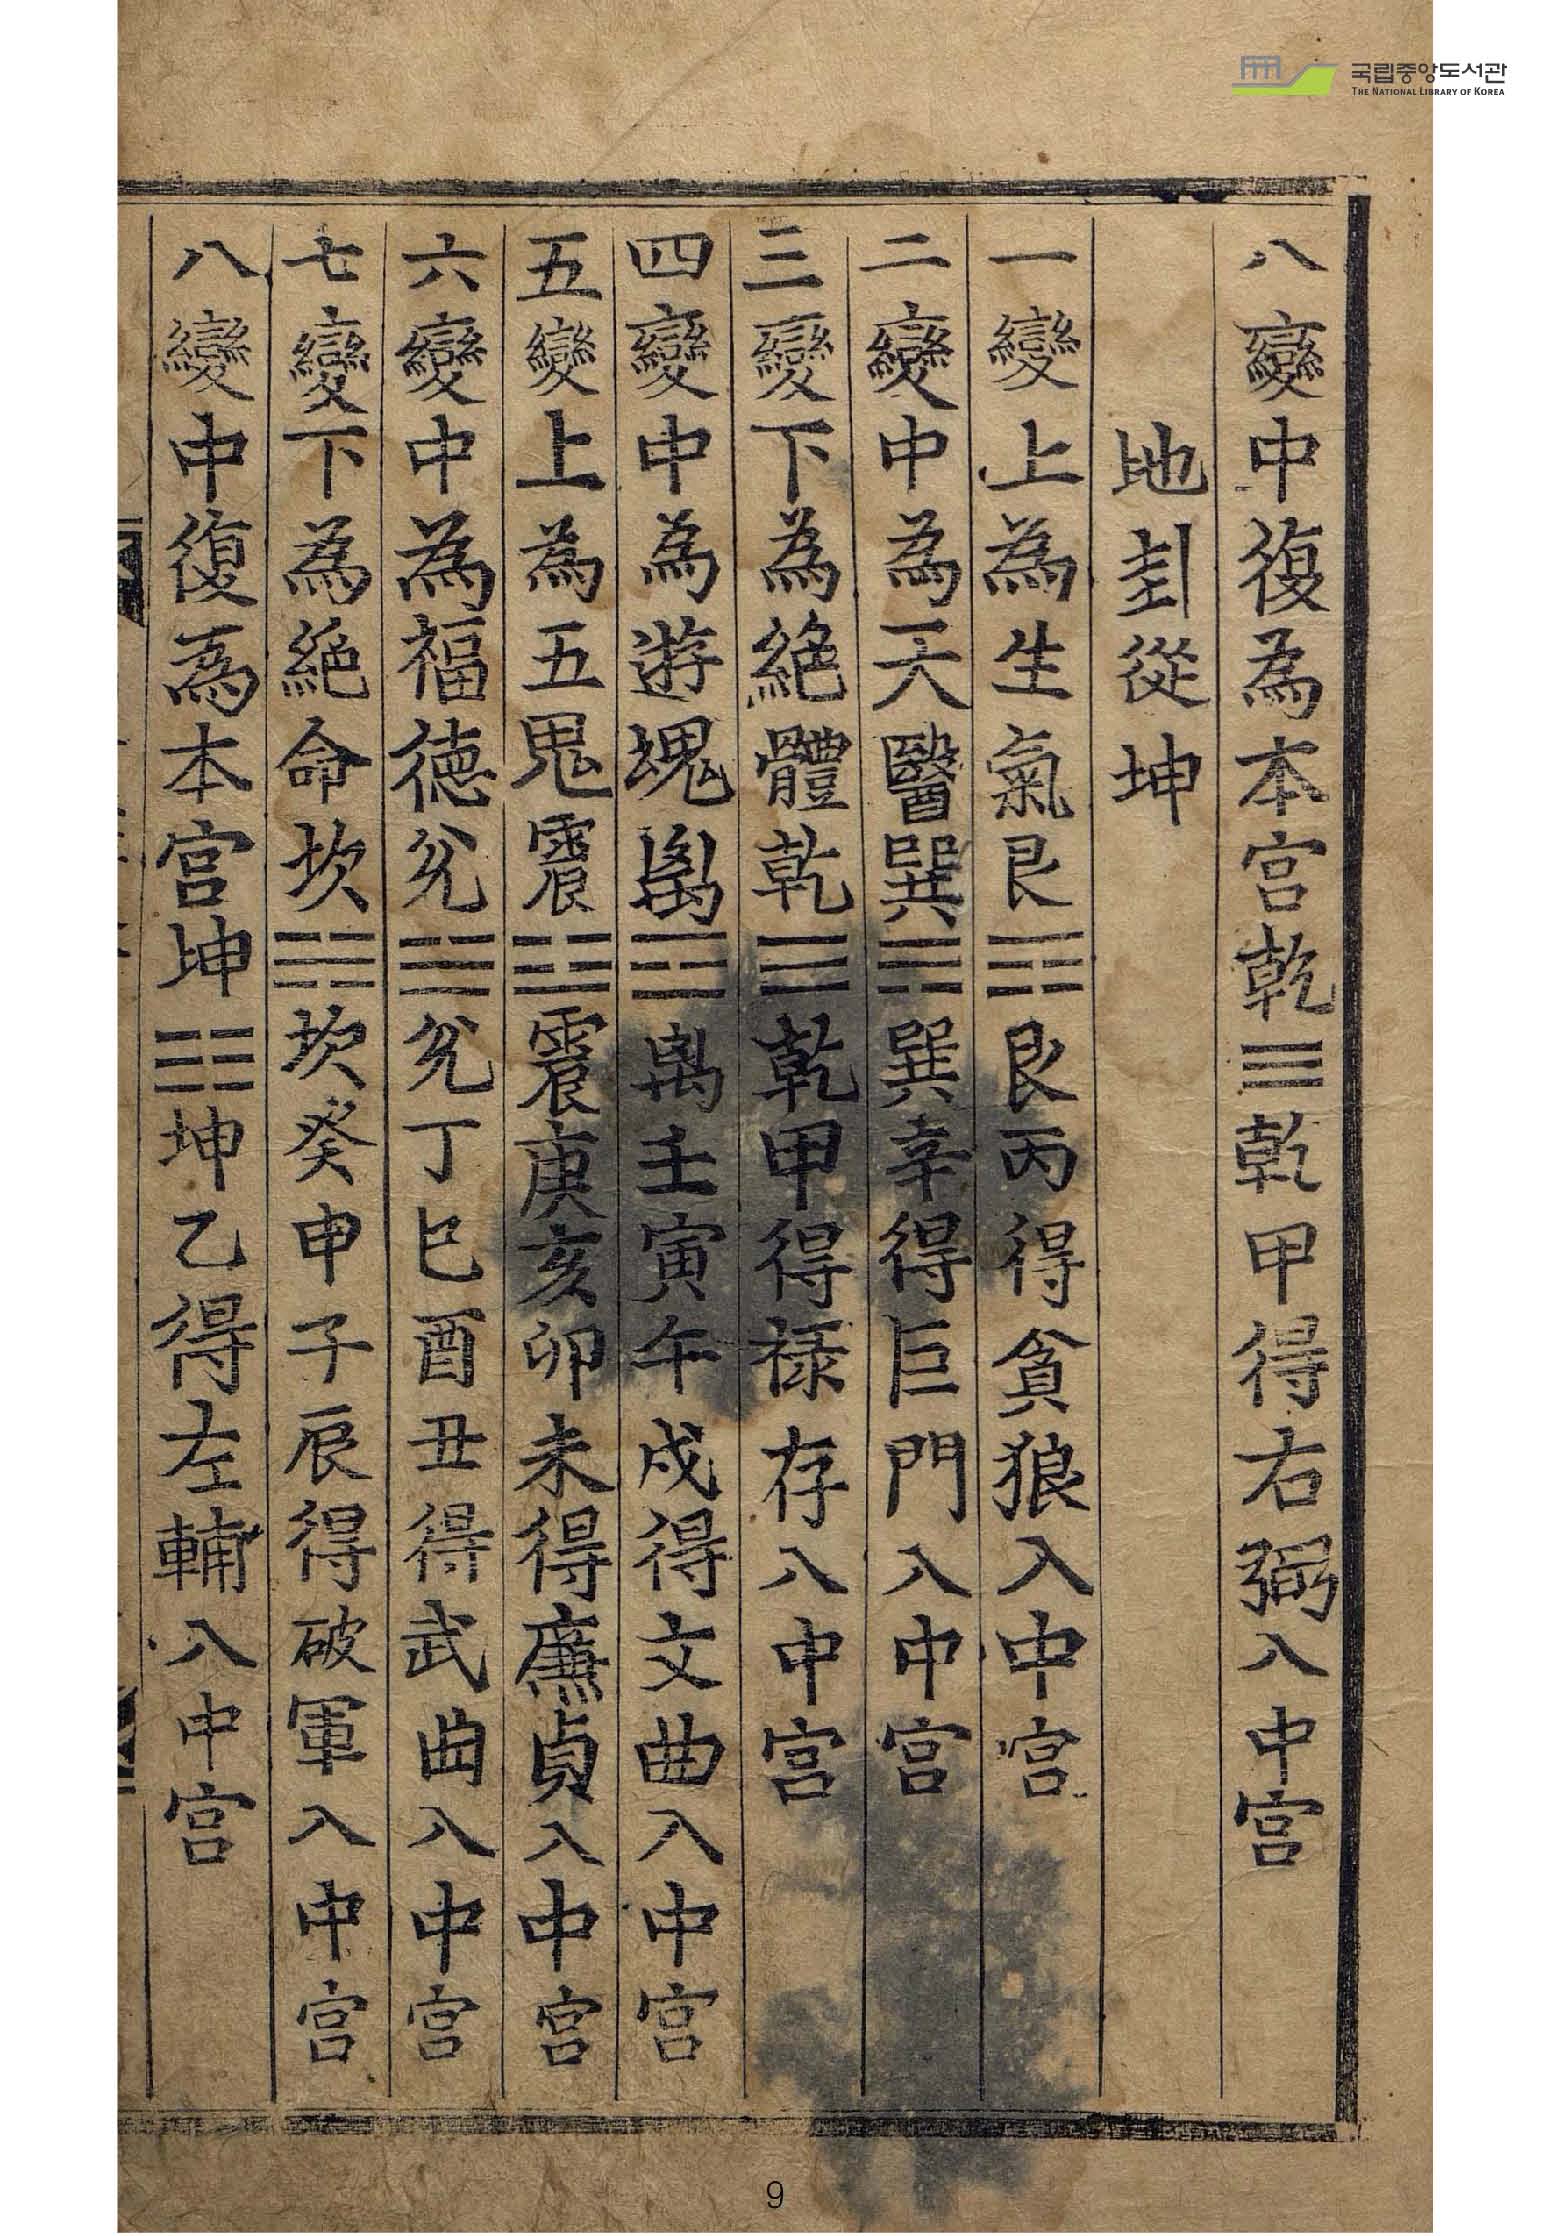 국립중앙도서관
THE NATIONAL LIBRARY OF KOREA
八變中復為本宮乾☰乾甲得右弼入中宮
地卦從坤
一變上為生氣艮☶艮丙得貪狼入中宮
二變中為天醫巽☴巽辛得巨門入中宮
三變下為絶體乾☰乾甲得祿存入中宮
四變中為遊魂离☲离壬寅午戌得文曲入中宮
五變上為五鬼震☳震庚亥卯未得廉貞入中宮
六變中為福德兌☱兌丁巳酉丑得武曲入中宮
七變下為絶命坎☵坎癸申子辰得破軍入中宮
八變中復為本宮坤☷坤乙得左輔入中宮
9